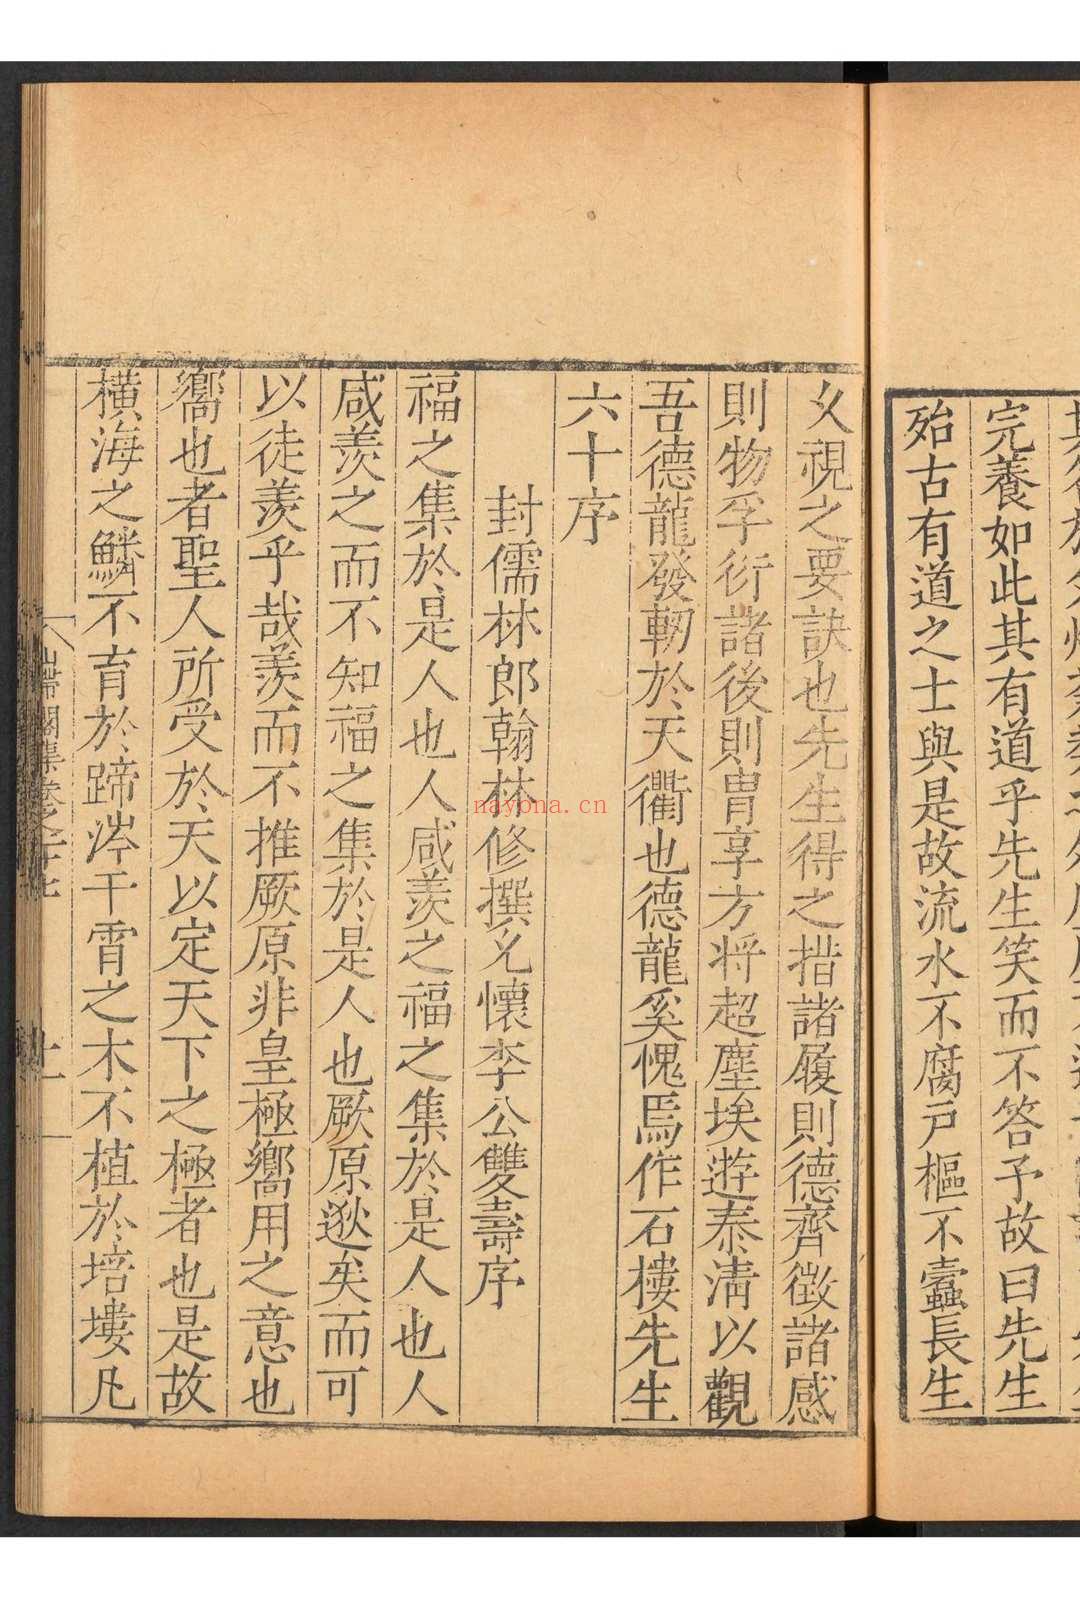 完養如此其有道乎先生笑而不答予故曰先生
殆古有道之士與是故流水不腐戶樞不蠹長生
久視之要訣也先生得之措諸履則德齊徵諸感
則物孚衍諸後則胄享方将超塵埃遊泰清以觀
吾德龍發軔於天衢也德龍奚愧焉作石樓先生
六十序
封儒林郎翰林修撰允懷李公雙壽序
福之集於是人也人咸羨之福之集於是人也人
咸羨之而不知福之集於是人也厥原逖矣而可
以徒羨乎哉羨而不推厥原非皇極嚮用之意也
嚮也者聖人所受於天以定天下之極者也是故
橫海之鱗不育於蹄涔干霄之木不植於培塿凡
山帶閣集卷之二十七
十一
nayona.cn